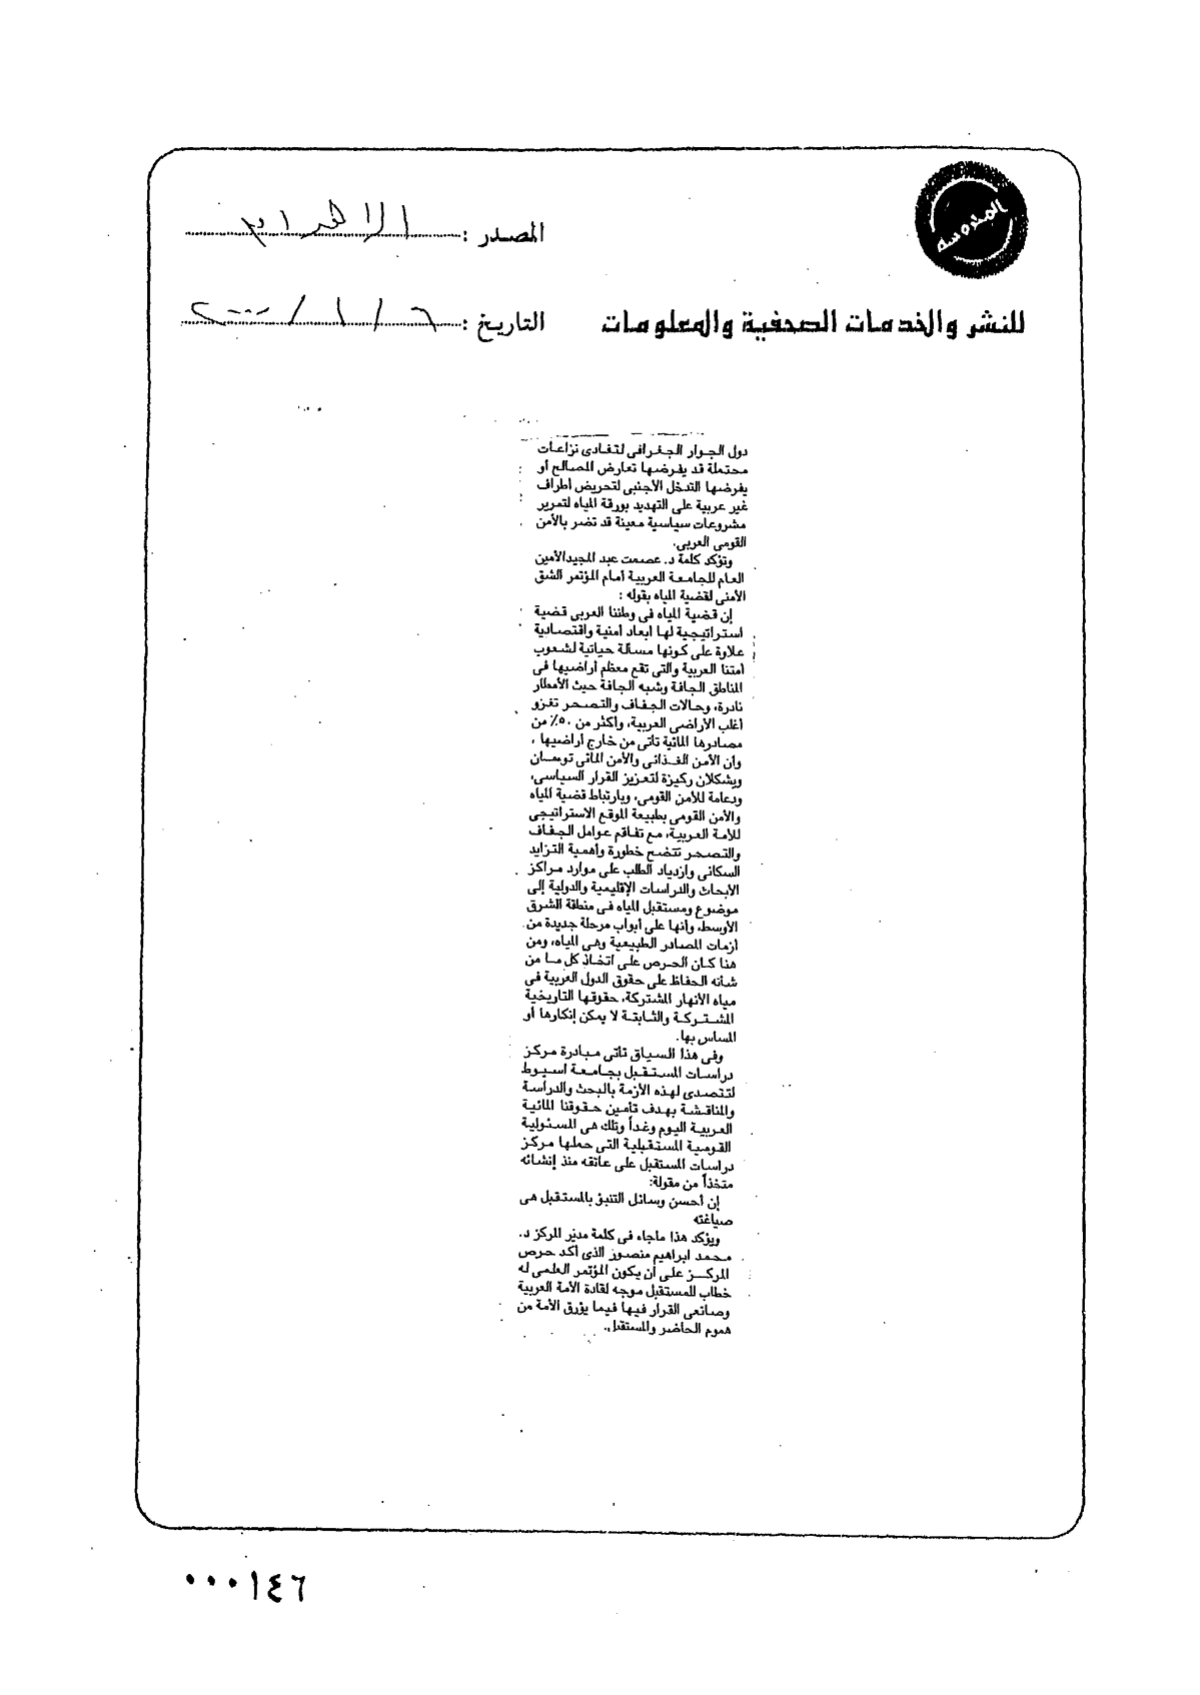 المصدر : الاهرام
للنشر والخدمات الصحفية والمعلومات
التاريخ : ٦ / ١ / ٢٠٠٠
دول الجوار الجغرافى لتفادى نزاعات
محتملة قد يفرضها تعارض المصالح أو
يفرضها التدخل الأجنبى لتحريض أطراف
غير عربية على التهديد بورقة المياه لتمرير
مشروعات سياسية معينة قد تضر بالأمن
القومى العربى.
وتؤكد كلمة د. عصمت عبد المجيد الأمين
العام للجامعة العربية أمام المؤتمر الشق
الأمنى لقضية المياه بقوله :
إن قضية المياه فى وطننا العربى قضية
استراتيجية لها أبعاد أمنية واقتصادية
علاوة على كونها مسألة حياتية لشعوب
أمتنا العربية والتى تقع معظم أراضيها فى
المناطق الجافة وشبه الجافة حيث الأمطار
نادرة، وحالات الجفاف والتصحر تغزو
أغلب الأراضى العربية، وأكثر من ٥٠٪ من
مصادرها المائية تأتى من خارج أراضيها ،
وأن الأمن الغذائى والأمن المائى توءمان
ويشكلان ركيزة لتعزيز القرار السياسى،
ودعامة للأمن القومى، وبارتباط قضية المياه
والأمن القومى بطبيعة الموقع الاستراتيجى
للأمة العربية، مع تفاقم عوامل الجفاف
والتصحر تتضح خطورة وأهمية التزايد
السكانى وازدياد الطلب على موارد مراكز
الأبحاث والدراسات الإقليمية والدولية إلى
موضوع ومستقبل المياه فى منطقة الشرق
الأوسط، وأنها على أبواب مرحلة جديدة من
أزمات المصادر الطبيعية وهى المياه، ومن
هنا كان الحرص على اتخاذ كل ما من
شأنه الحفاظ على حقوق الدول العربية فى
مياه الأنهار المشتركة، حقوقها التاريخية
المشتركة والثابتة لا يمكن إنكارها أو
المساس بها.
وفى هذا السياق تأتى مبادرة مركز
دراسات المستقبل بجامعة اسيوط
لتتصدى لهذه الأزمة بالبحث والدراسة
والمناقشة بهدف تأمين حقوقنا المائية
العربية اليوم وغداً وتلك هى المسئولية
القومية المستقبلية التى حملها مركز
دراسات المستقبل على عاتقه منذ إنشائه
متخذاً من مقولة:
إن أحسن وسائل التنبؤ بالمستقبل هى
صياغته
ويؤكد هذا ماجاء فى كلمة مدير المركز د.
محمد ابراهيم منصور الذى أكد حرص
المركز على أن يكون المؤتمر العلمى له
خطاب للمستقبل موجه لقادة الأمة العربية
وصانعى القرار فيها فيما يؤرق الأمة من
هموم الحاضر والمستقبل.
٠٠٠١٤٦